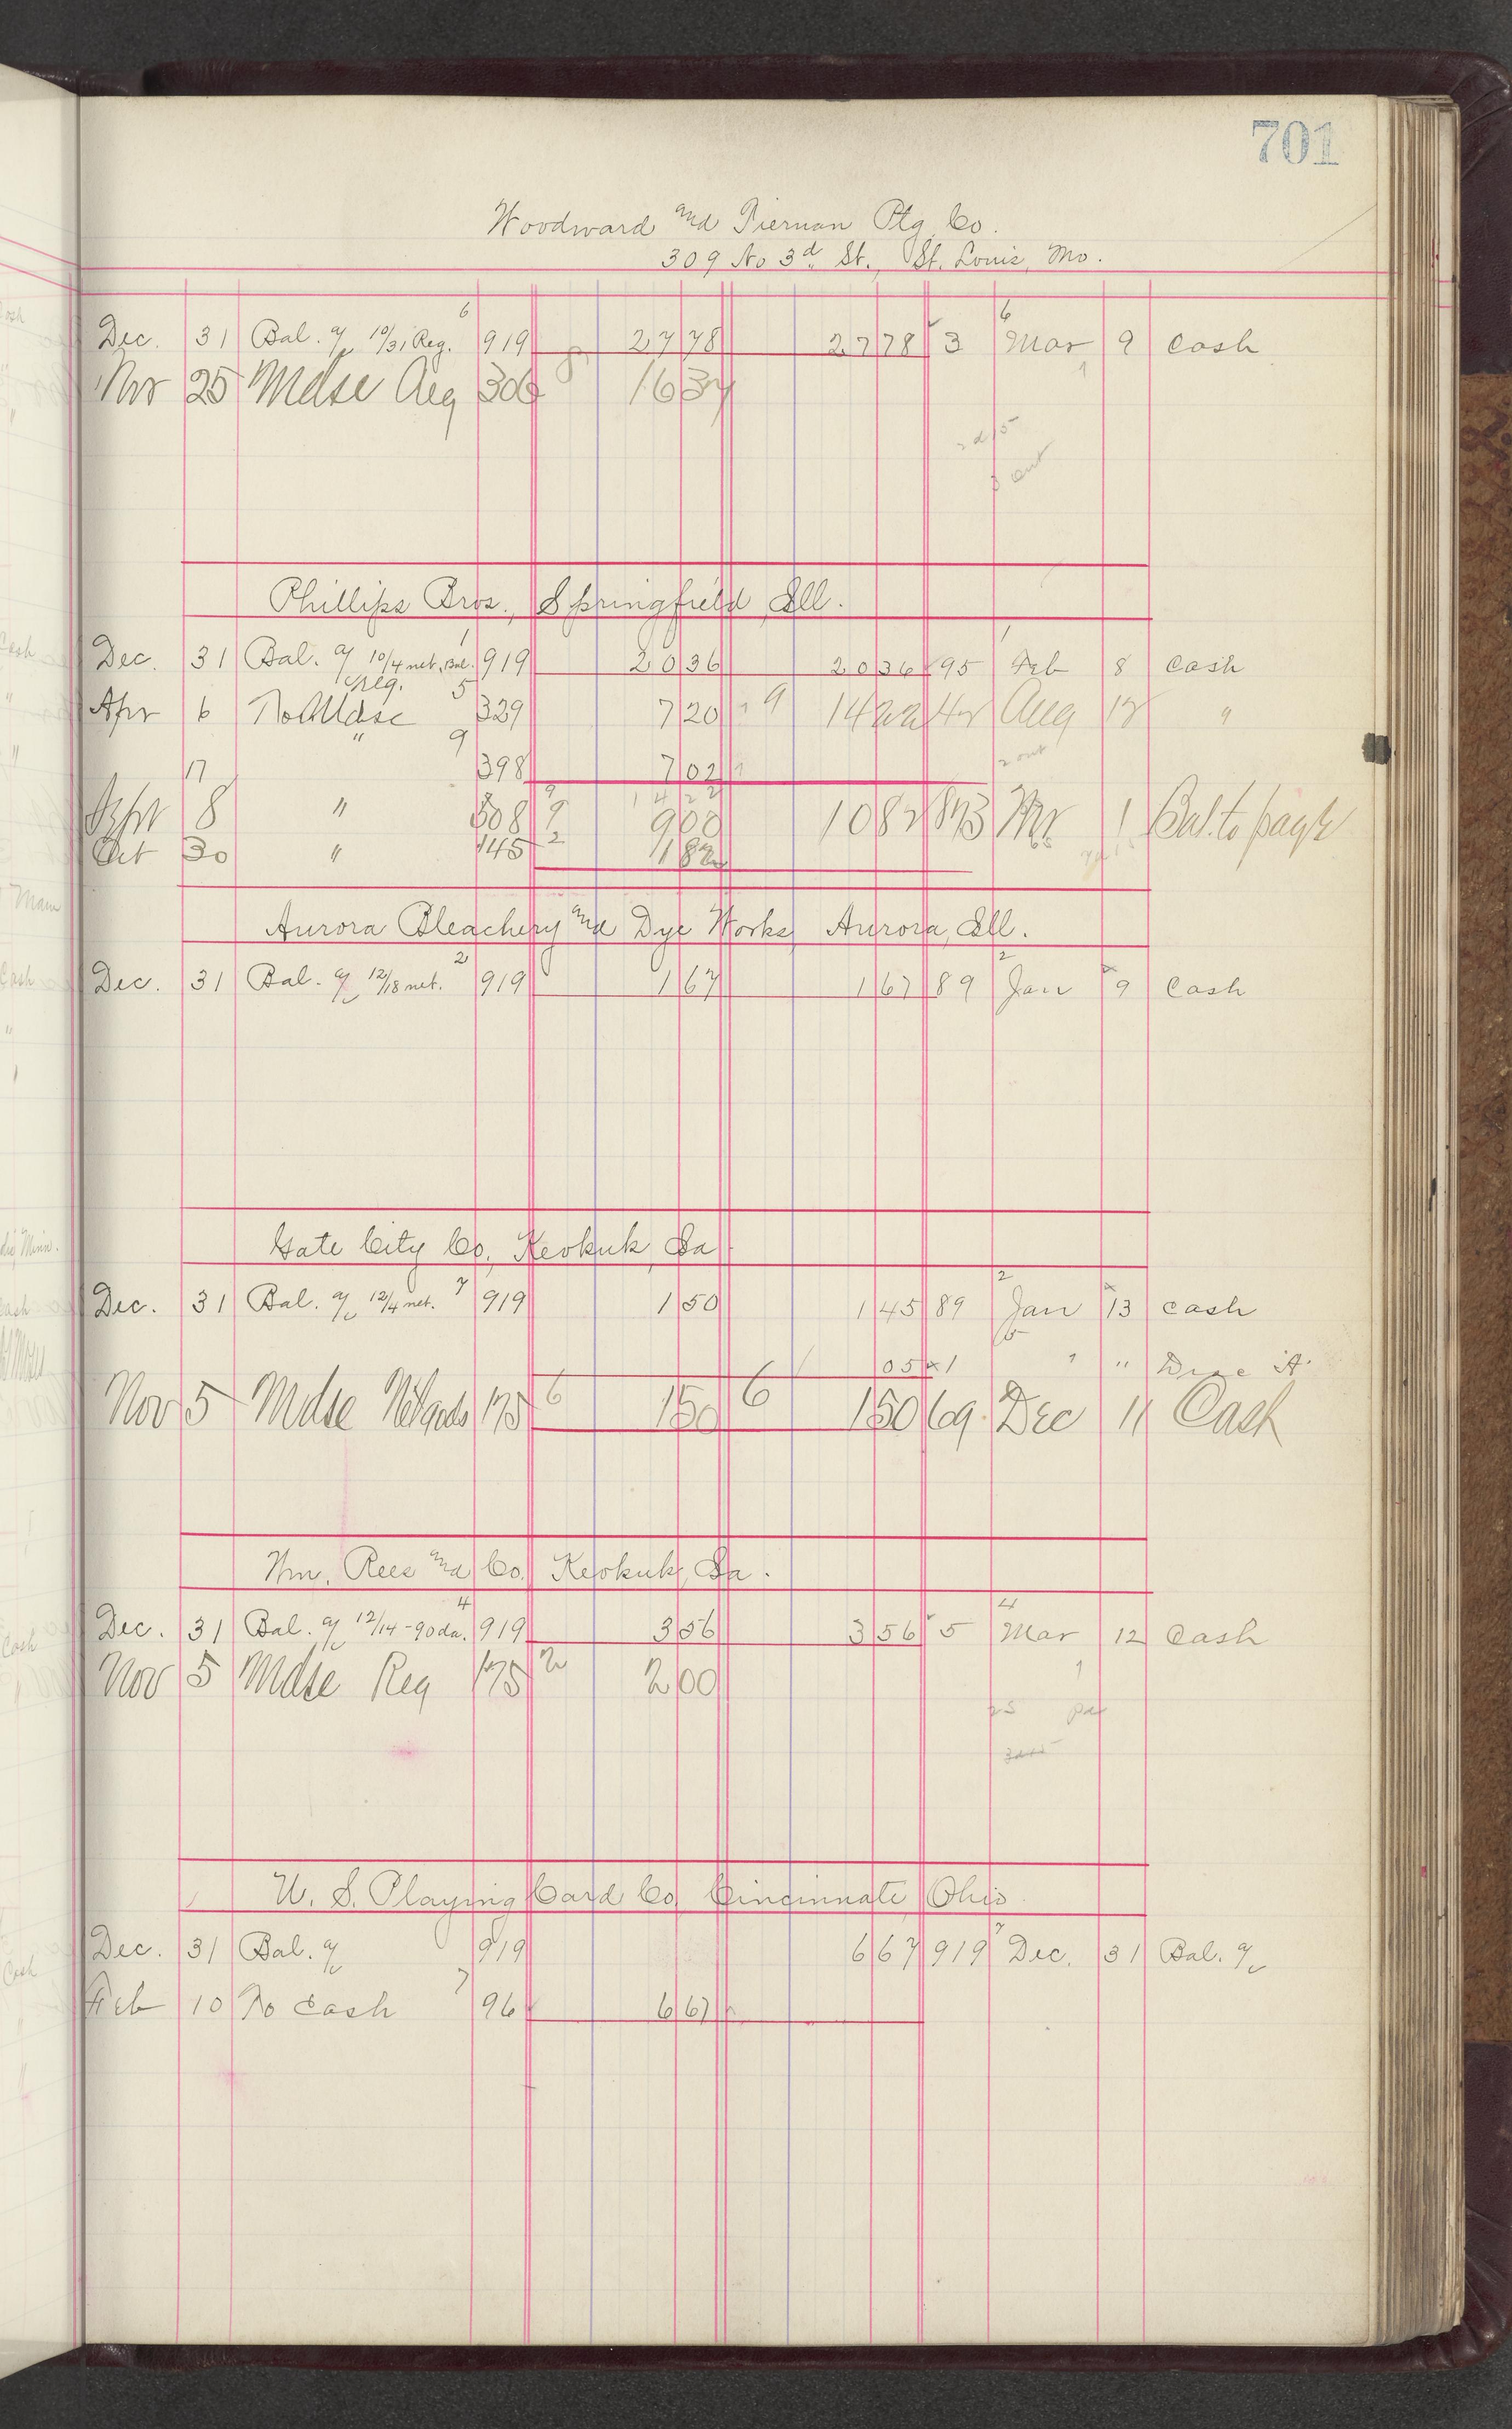 701
Woodward and Tiernan Ptg. Co.
309 No 3d. St., St. Louis, Mo.
6 6
Dec. 31 Bal. a/c 10/31 Reg. 919 27 78 27 78 3 Mar 9 Cash
Nov 25 Mdse Reg 306 16 37
Phillips Bros., Springfield, Ill.
1 1
Dec. 31 Bal. a/c 10/4 net. Bal. 919 20 36 20 36 95 Feb 8 Cash
reg. 5
Apr 6 To Mdse 329 7 20 9 14 22 Aug 12 "
" 9
17 398 7 02 2 out
14 22
Sept 8 " 808 9 9 00 10 82 873 Mr 1 Bal. to page
Oct 30 " 145 2 1 82
Aurora Bleachery and Dye Works, Aurora, Ill.
2 2
Dec. 31 Bal. a/c 12/18 net. 919 1 67 1 67 89 Jan 9 Cash
Gate City Co., Keokuk, Ia.
7 2
Dec. 31 Bal. a/c 12/4 net. 919 1 50 1 45 89 Jan 13 Cash
05 1 " "
Nov 5 Mdse Net goods 175 6 1 50 6 1 50 69 Dec 11 Cash
Wm. Rees and Co. Keokuk, Ia.
4 4
Dec. 31 Bal. a/c 12/14 - 90 da. 919 3 56 3 56 5 Mar 12 Cash
Nov 5 Mdse Reg 175 2 2 00
U. S. Playing Card Co. Cincinnati, Ohio
Dec. 31 Bal. a/c 919 6 67 919 7 Dec. 31 Bal. a/c
Feb 10 To Cash 7 96 6 67